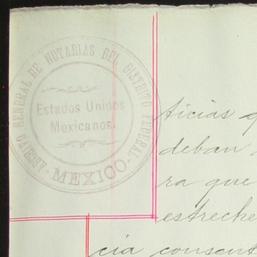 ARCHIVO GENERAL DE NOTARIAS DEL DISTRITO FEDERAL.
Estados Unidos
Mexicanos.
MEXICO
ticias q
deban
ra que
estreche
cia consent